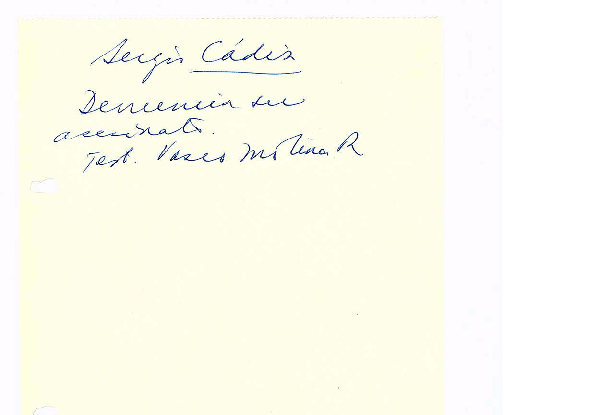 Sergio Cádiz
Denuncia su
asesinato.
Test. Vasco Molina R